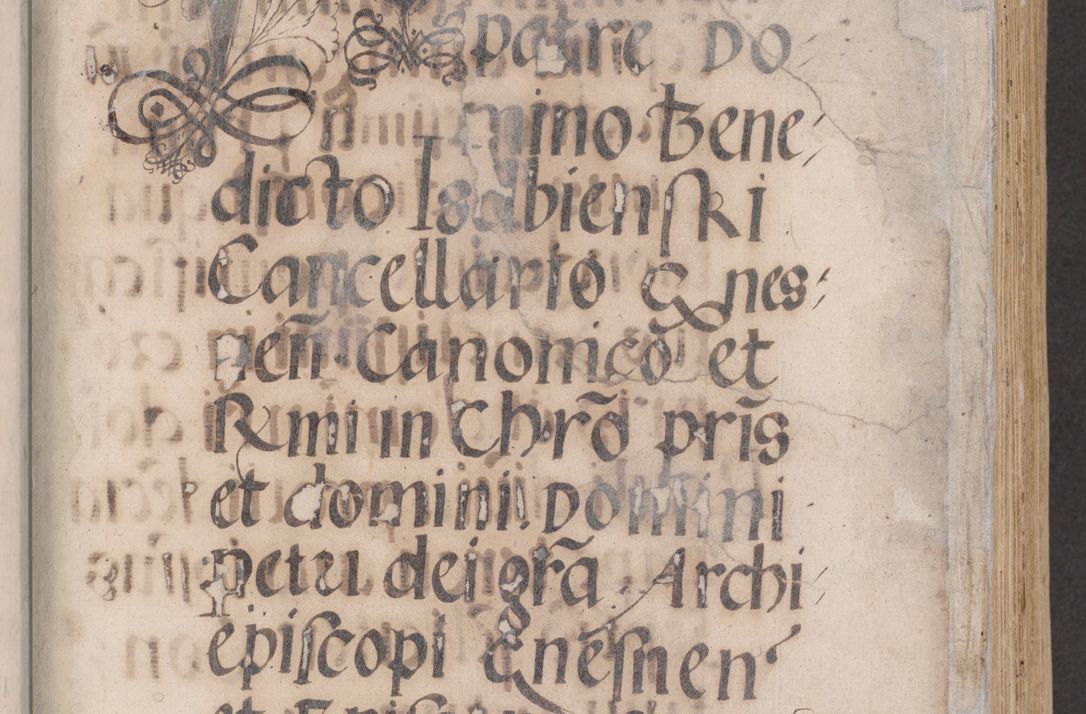 patre Do
mino Bene
dicto Isdbienski
Cancellario Gnes
nen̄ Canonico et
Rmi in Chrō pris̄
et domini Domini
petri dei grā Archi
episcopi Gnesnen
et Episcop